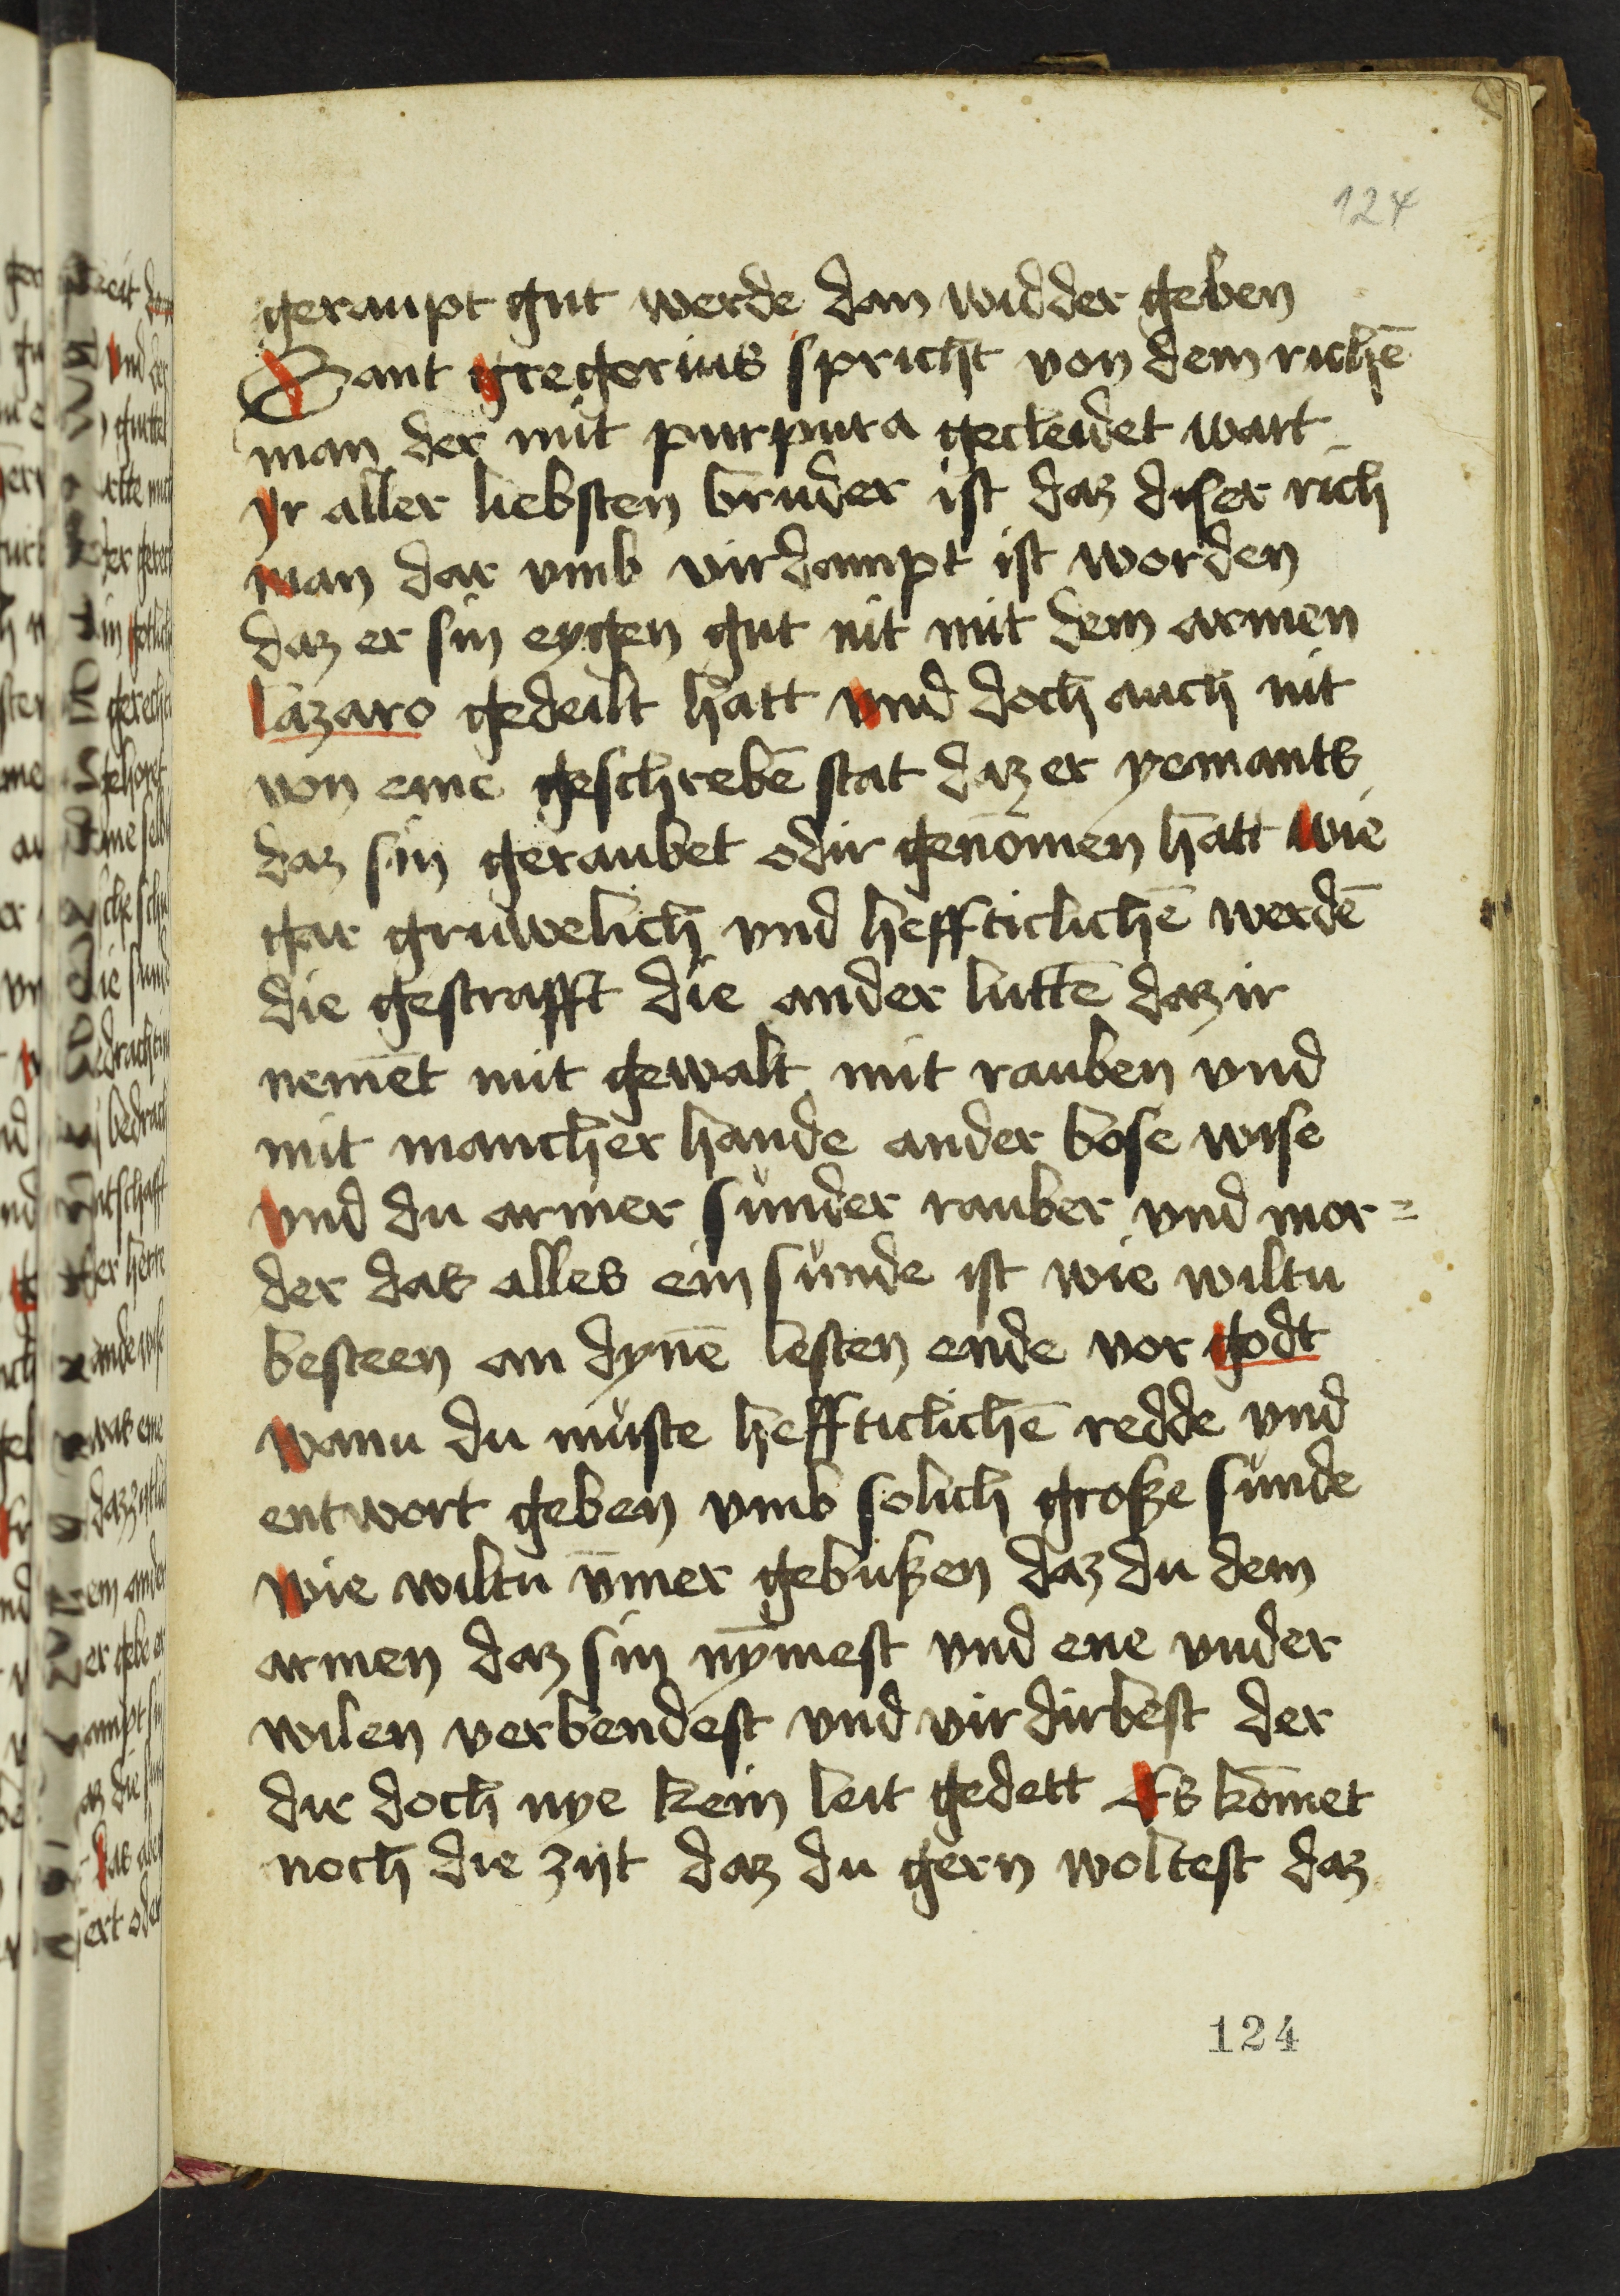 124
geraupt gut werde dan widder geben
Sant gregorius spricht von dem richē
man der mit purpura gecleidet wart
yr aller liebsten bruder ist daz diser rich
man dar vmb virdampt ist worden
daz er sin eygen gut nit mit dem armen
lazaro gedeilt hatt vnd doch auch nit
von eme geschrebē stat daz er yemants
daz sin geraubet odir genōmen hatt wie
gar gruwelich vnd heffticlichē werdē
die gestrafft die ander luttē daz ir
nemēt mit gewalt mit rauben vnd
mit mancher hande ander bose wise
vnd du armer sunder rauber vnd mor=
der das alles ein sunde ist wie wiltu
besteen an dynē lesten ende vor godt
wann du muste heffticlichē redde vnd
entwort geben vmb solich große sunde
wie wiltu ūmer gebußen daz du dem
armen daz sin nȳmest vnd ene vnder
wilen verbendest vnd virdirbest der
dir doch nye kein leit gedett Es kōmet
noch die zijt daz du gern woltest daz
124